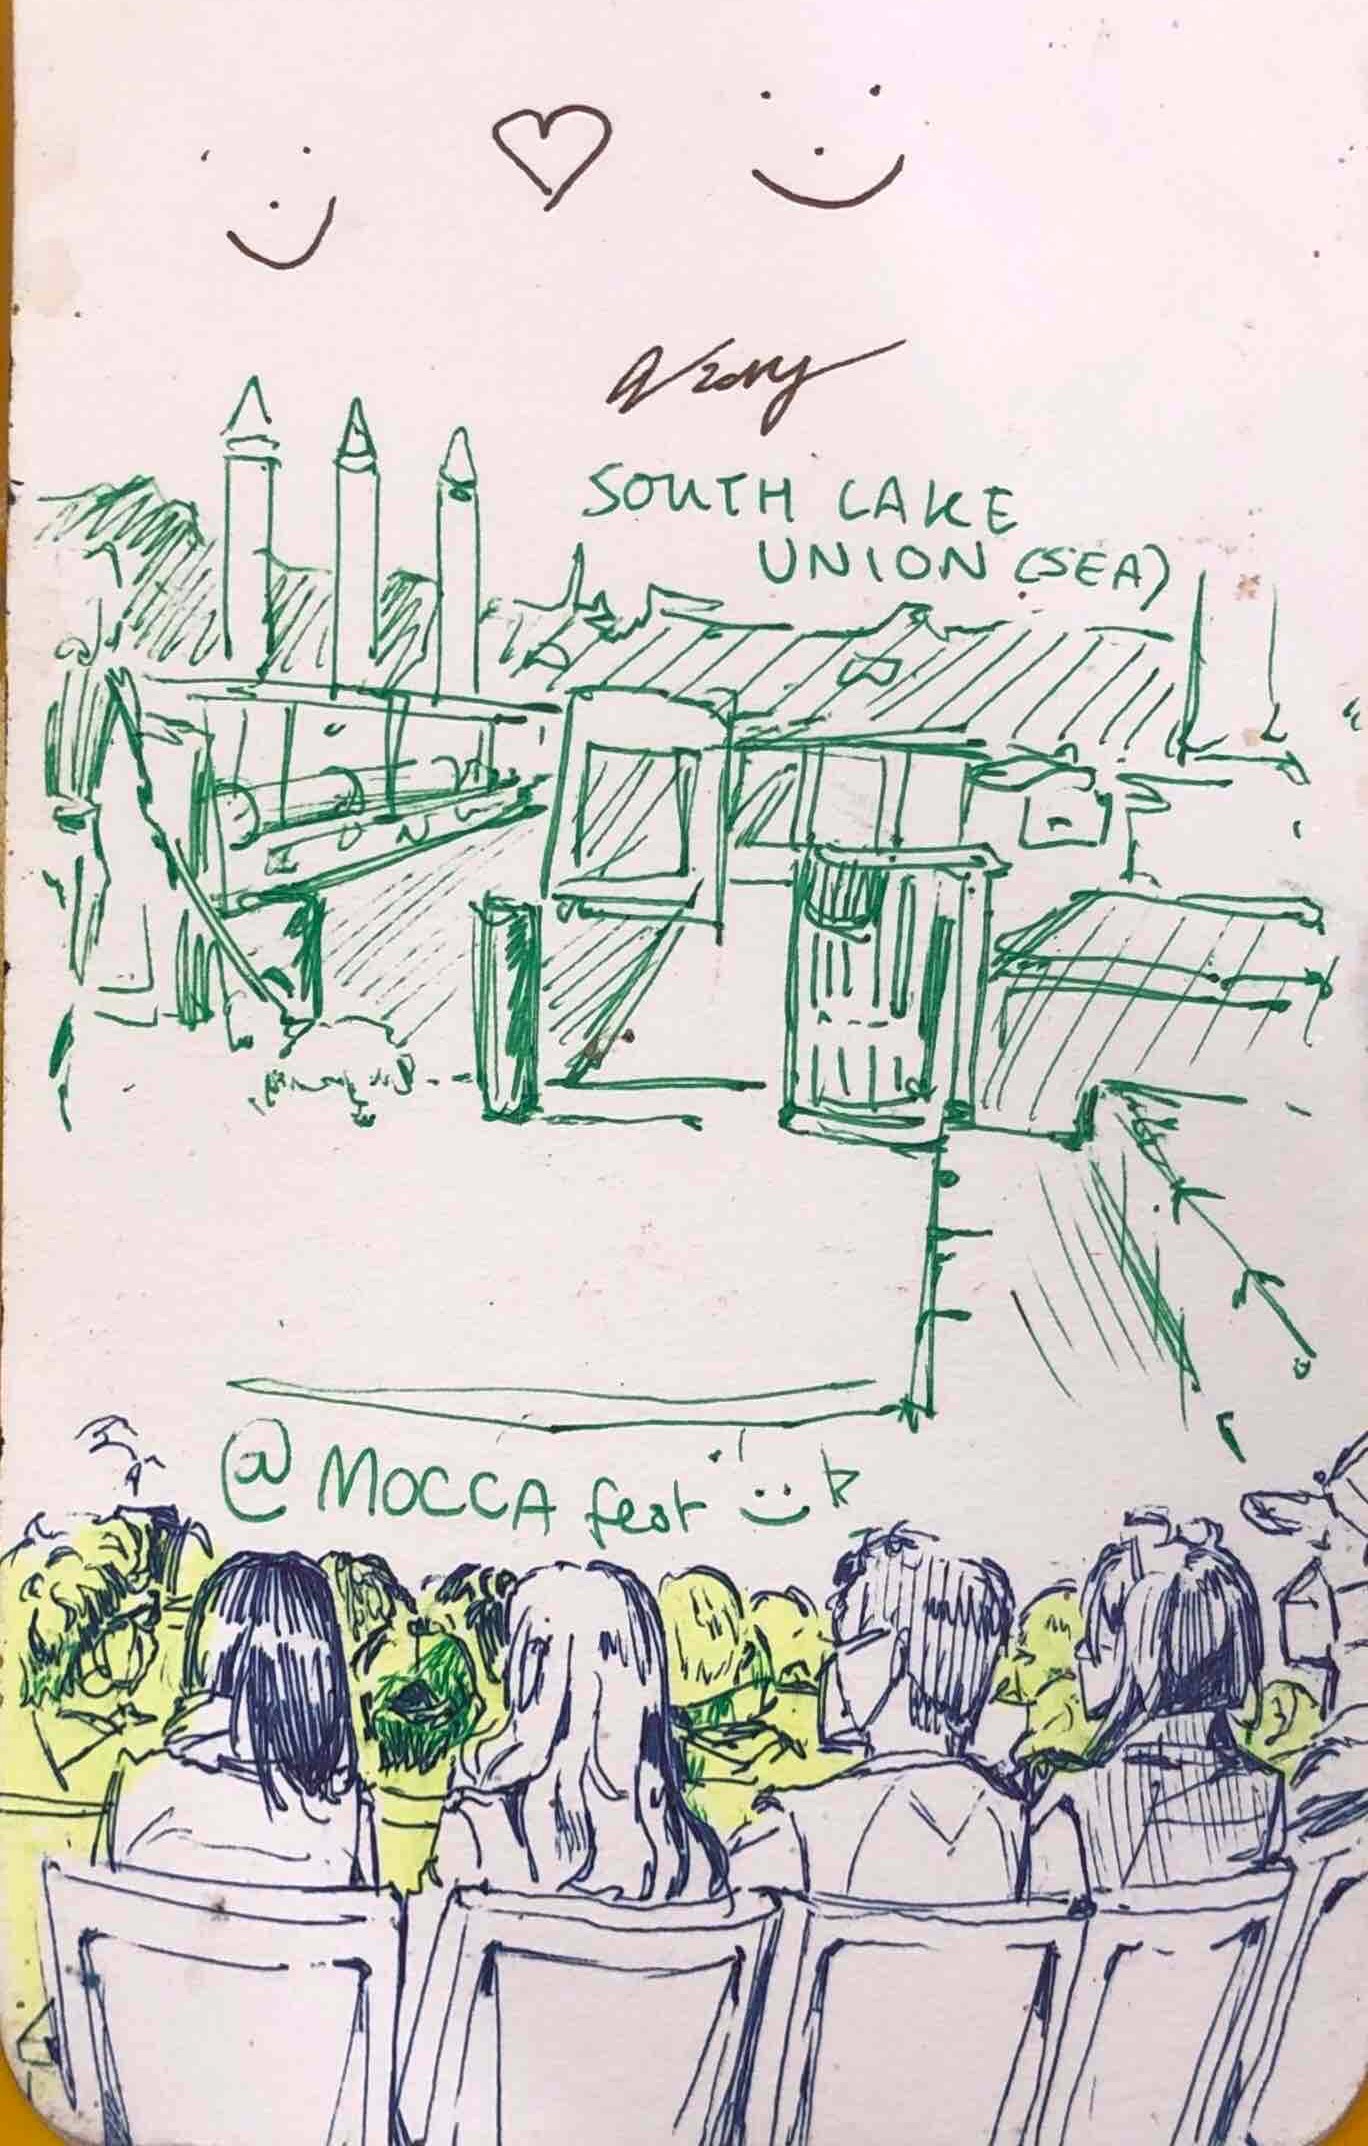 SOUTH LAKE
UNION (SEA)
@ MOCCA fest